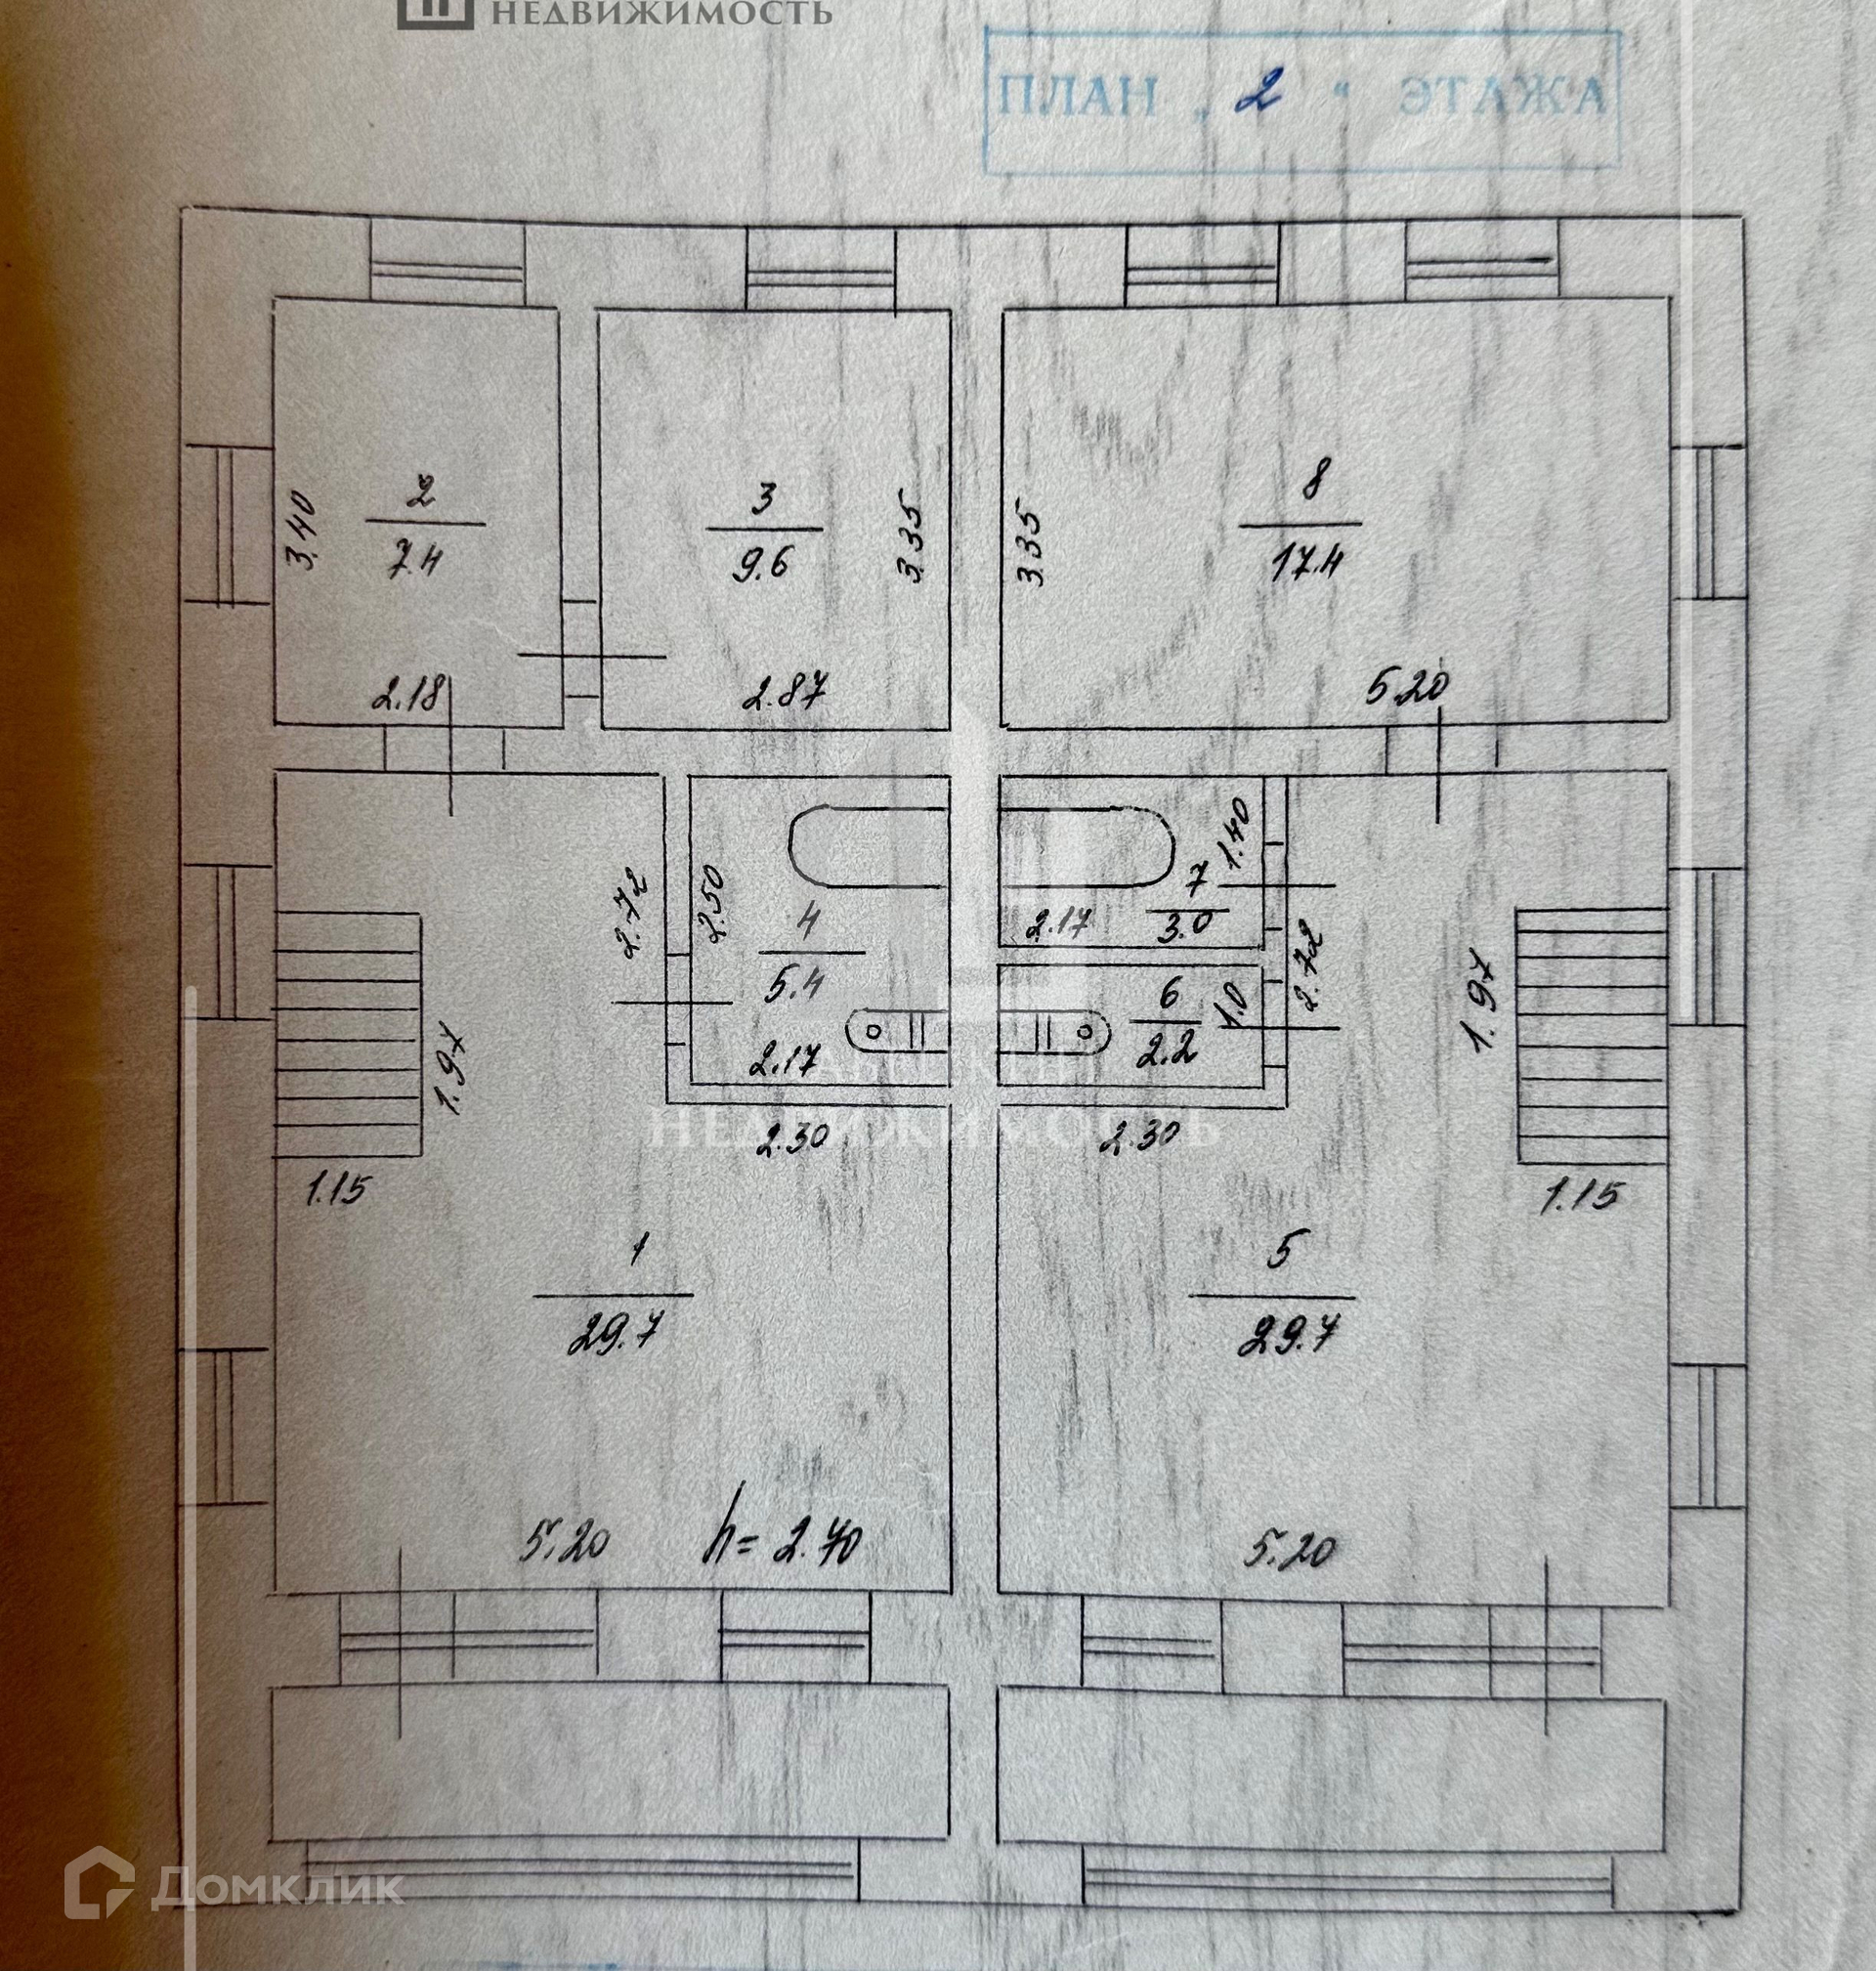 НЕДВИЖИМОСТЬ
ПЛАН „ 2 “ ЭТАЖА
3.40
2
7.4
2.18
3
9.6
3.35
2.87
3.35
8
17.4
5.20
2.72
2.50
4
5.4
2.17
1.40
7
3.0
2.17
6
2.2
1.0
2.72
1.97
1.97
1.15
2.30
2.30
1.15
НЕДВИЖИМОСТЬ
1
29.7
5
29.7
5.20
h= 2.70
5.20
Домклик